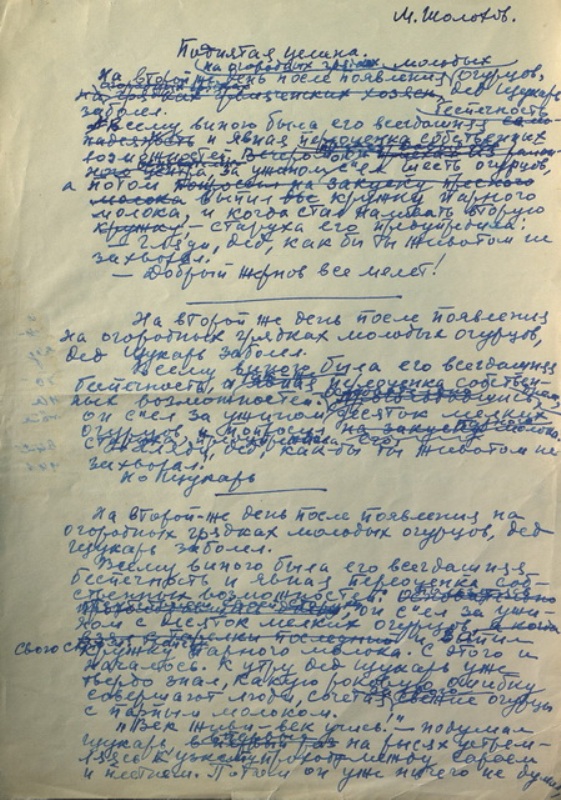 М. Шолохов.
Поднятая целина.
на огородных грядках молодых
На второй же день после появления огурцов,
на грядках гремяченских хозяев, дед Щукарь
заболел.
беспечность
Всему виною была его всегдашняя
надеянность и явная переоценка собственных
возможностей.
центра, за ужином съел шесть огурцов,
а потом попросил на закуску пресного
молока выпил кружку парного
молока, и когда стал наливать вторую
кружку, – старуха его предупредила:
– Гляди, дед, как бы ты животом не
захворал.
– Добрый жернов все мелет!
На второй же день после появления
на огородных грядках молодых огурцов,
дед Щукарь заболел.
Всему виною была его всегдашняя
беспечность, и явная переоценка собствен-
ных возможностей.
он съел за ужином десяток мелких
огурцов, и попросил на закуску молока.
старуха предупреждала его:
– Гляди, дед, как бы ты животом не
захворал!
Но Щукарь
На второй-же день после появления на
огородных грядках молодых огурцов, дед
Щукарь заболел.
Всему виною была его всегдашняя
беспечность и явная переоценка соб-
ственных возможностей:
он съел за ужи-
ном с десяток мелких огурцов, а когда
последнюю и выпил
кружку парного молока. С этого и
началось. К утру дед Щукарь уже
твердо знал, какую роковую ошибку
совершают люди, сочетая свежие огурцы
с парным молоком.
"Век живи – век учись!" – подумал
Щукарь, в первый раз на рысях устрем-
ляясь к узкому проходу между сараем
и плетнем. Потом он уже ничего не думал